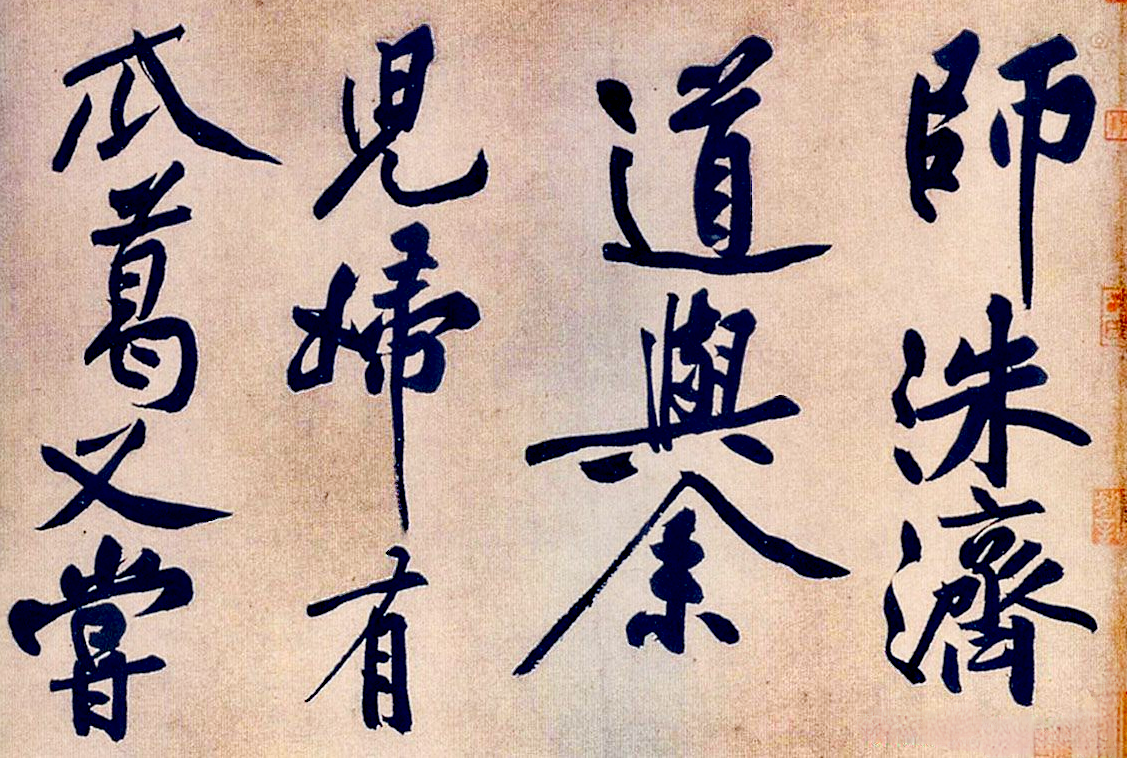 師洙濟
道與余
兒婦有
瓜葛又嘗